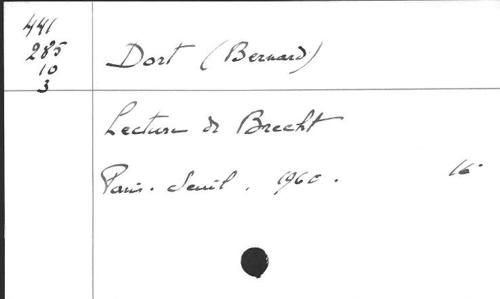 441
285
10
3
Dort (Bernard)
Lecture de Brecht
Paris. Seuil. 1960. 16°